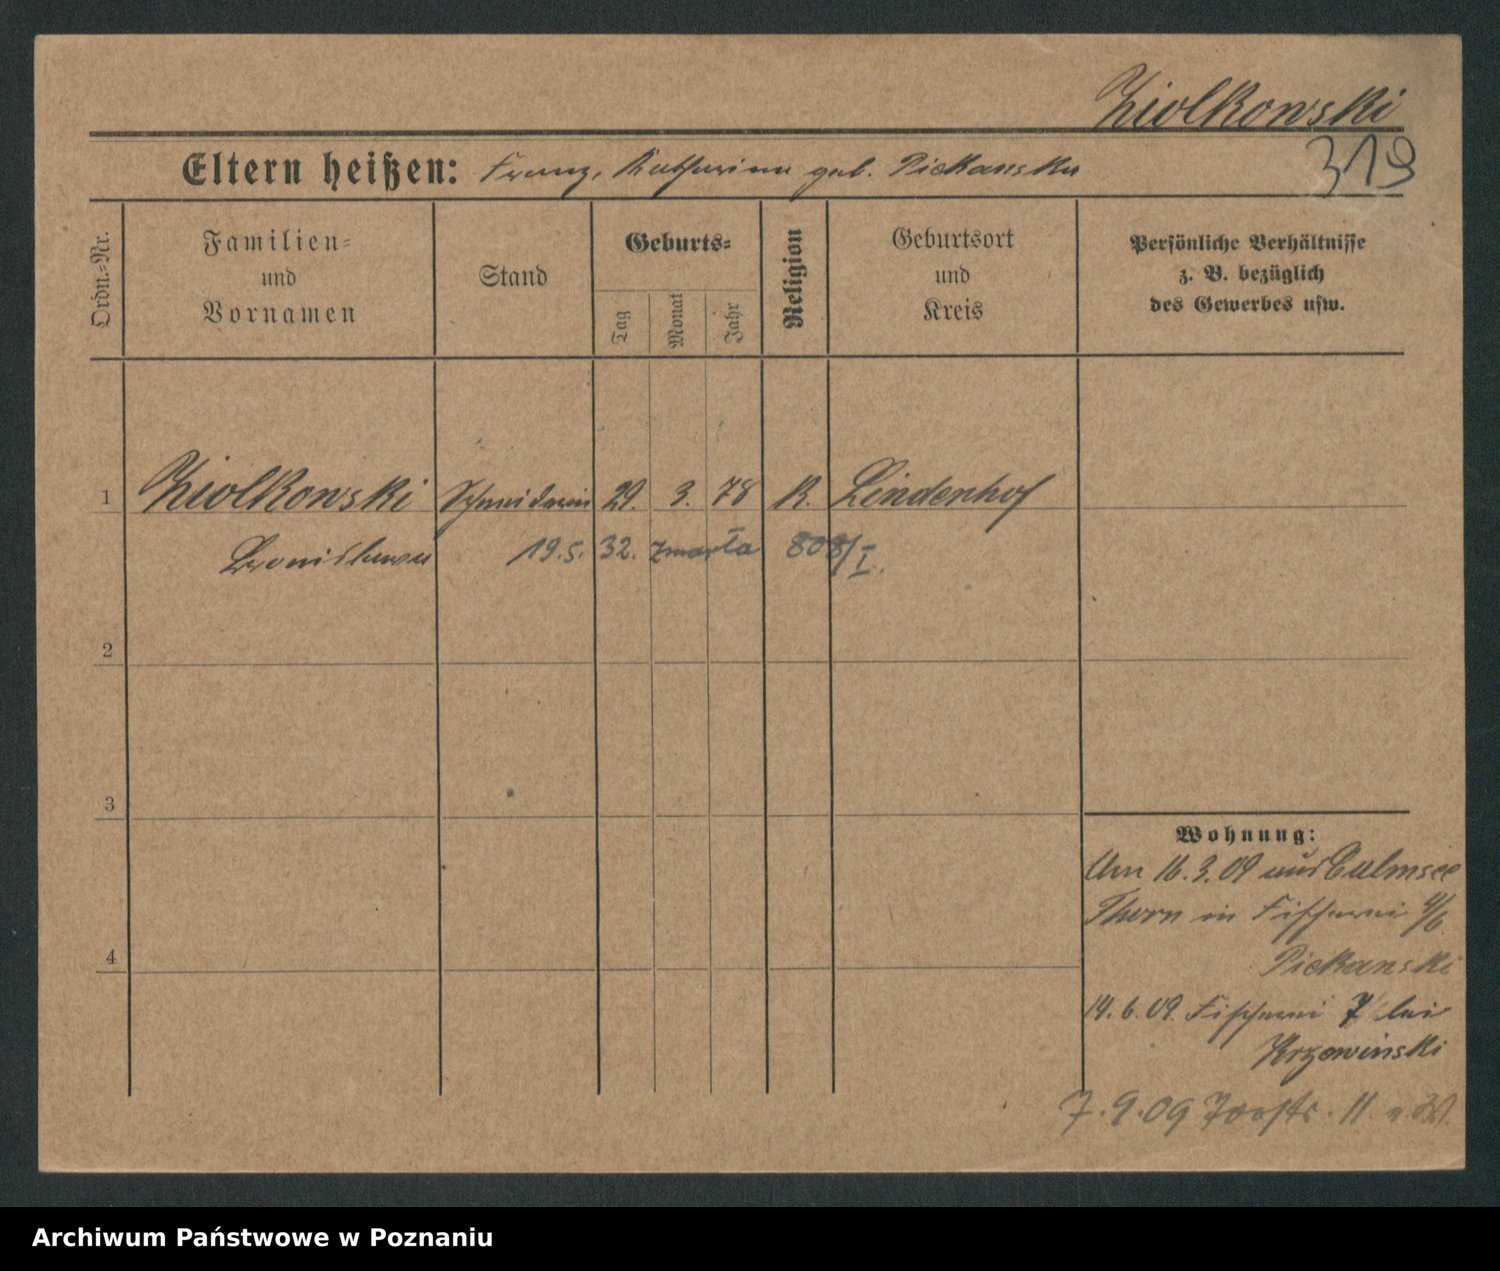 Ziolkowski
319
Eltern heißen: Franz, Katharina geb. Piekanska
Ordn.=Nr.
Familien=
und
Vornamen
Stand
Geburts=
Tag
Monat
Jahr
Religion
Geburtsort
und
Kreis
Persönliche Verhältnisse
z. B. bezüglich
des Gewerbes usw.
1 Ziolkowski Schneiderin 29. 3. 78 K. Lindenhof
Bronislawa 19.5. 32. zmarła 808/I.
2
3
4
Wohnung:
Am 16.3.09 aus Culmsee
Thorn in Fischerei
Piekanski
14.6.09. Fischerei 7 bei
Krzewinski
7.9.09 11.
Archiwum Państwowe w Poznaniu